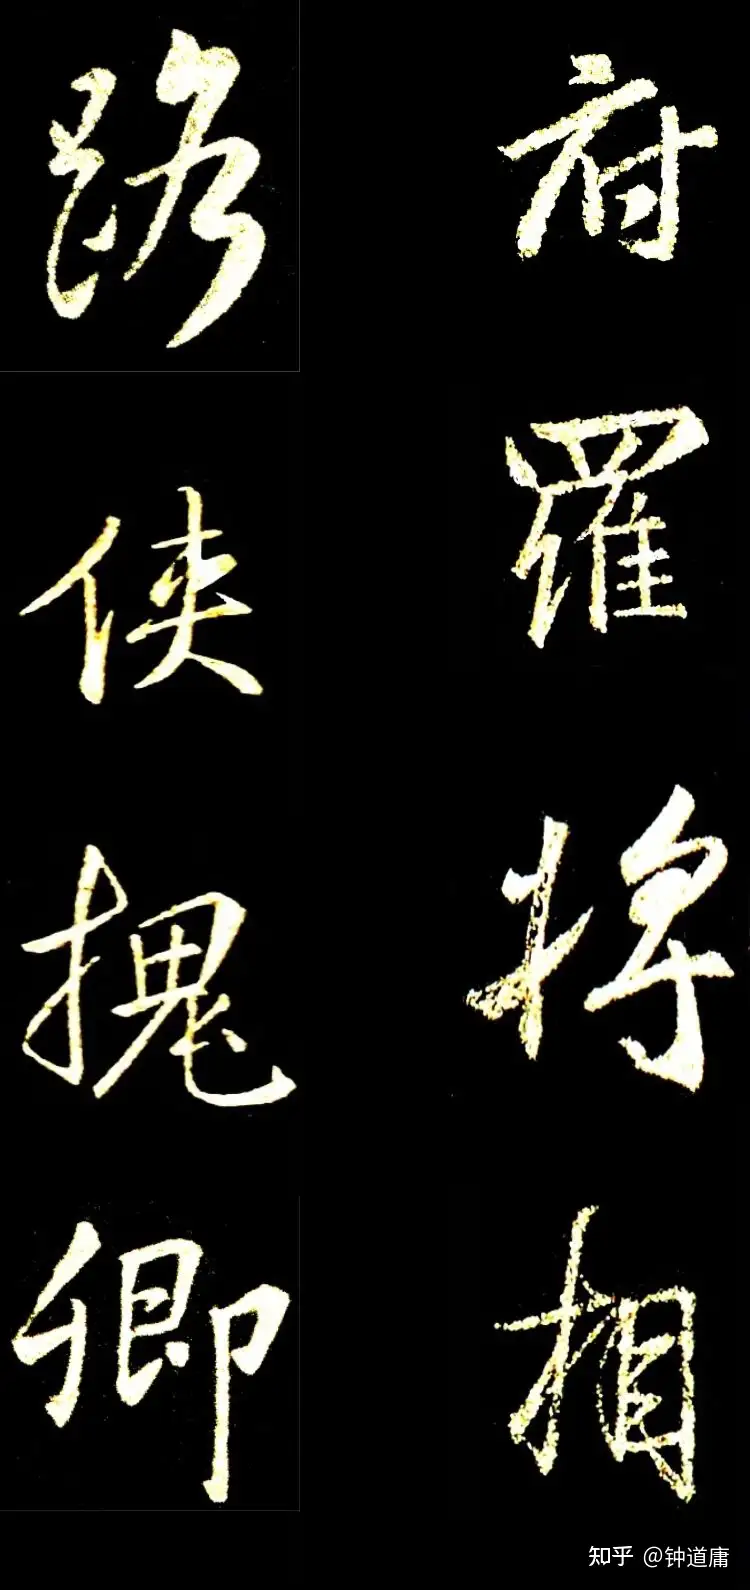 府羅將相
路俠槐卿
知乎 @钟道庸